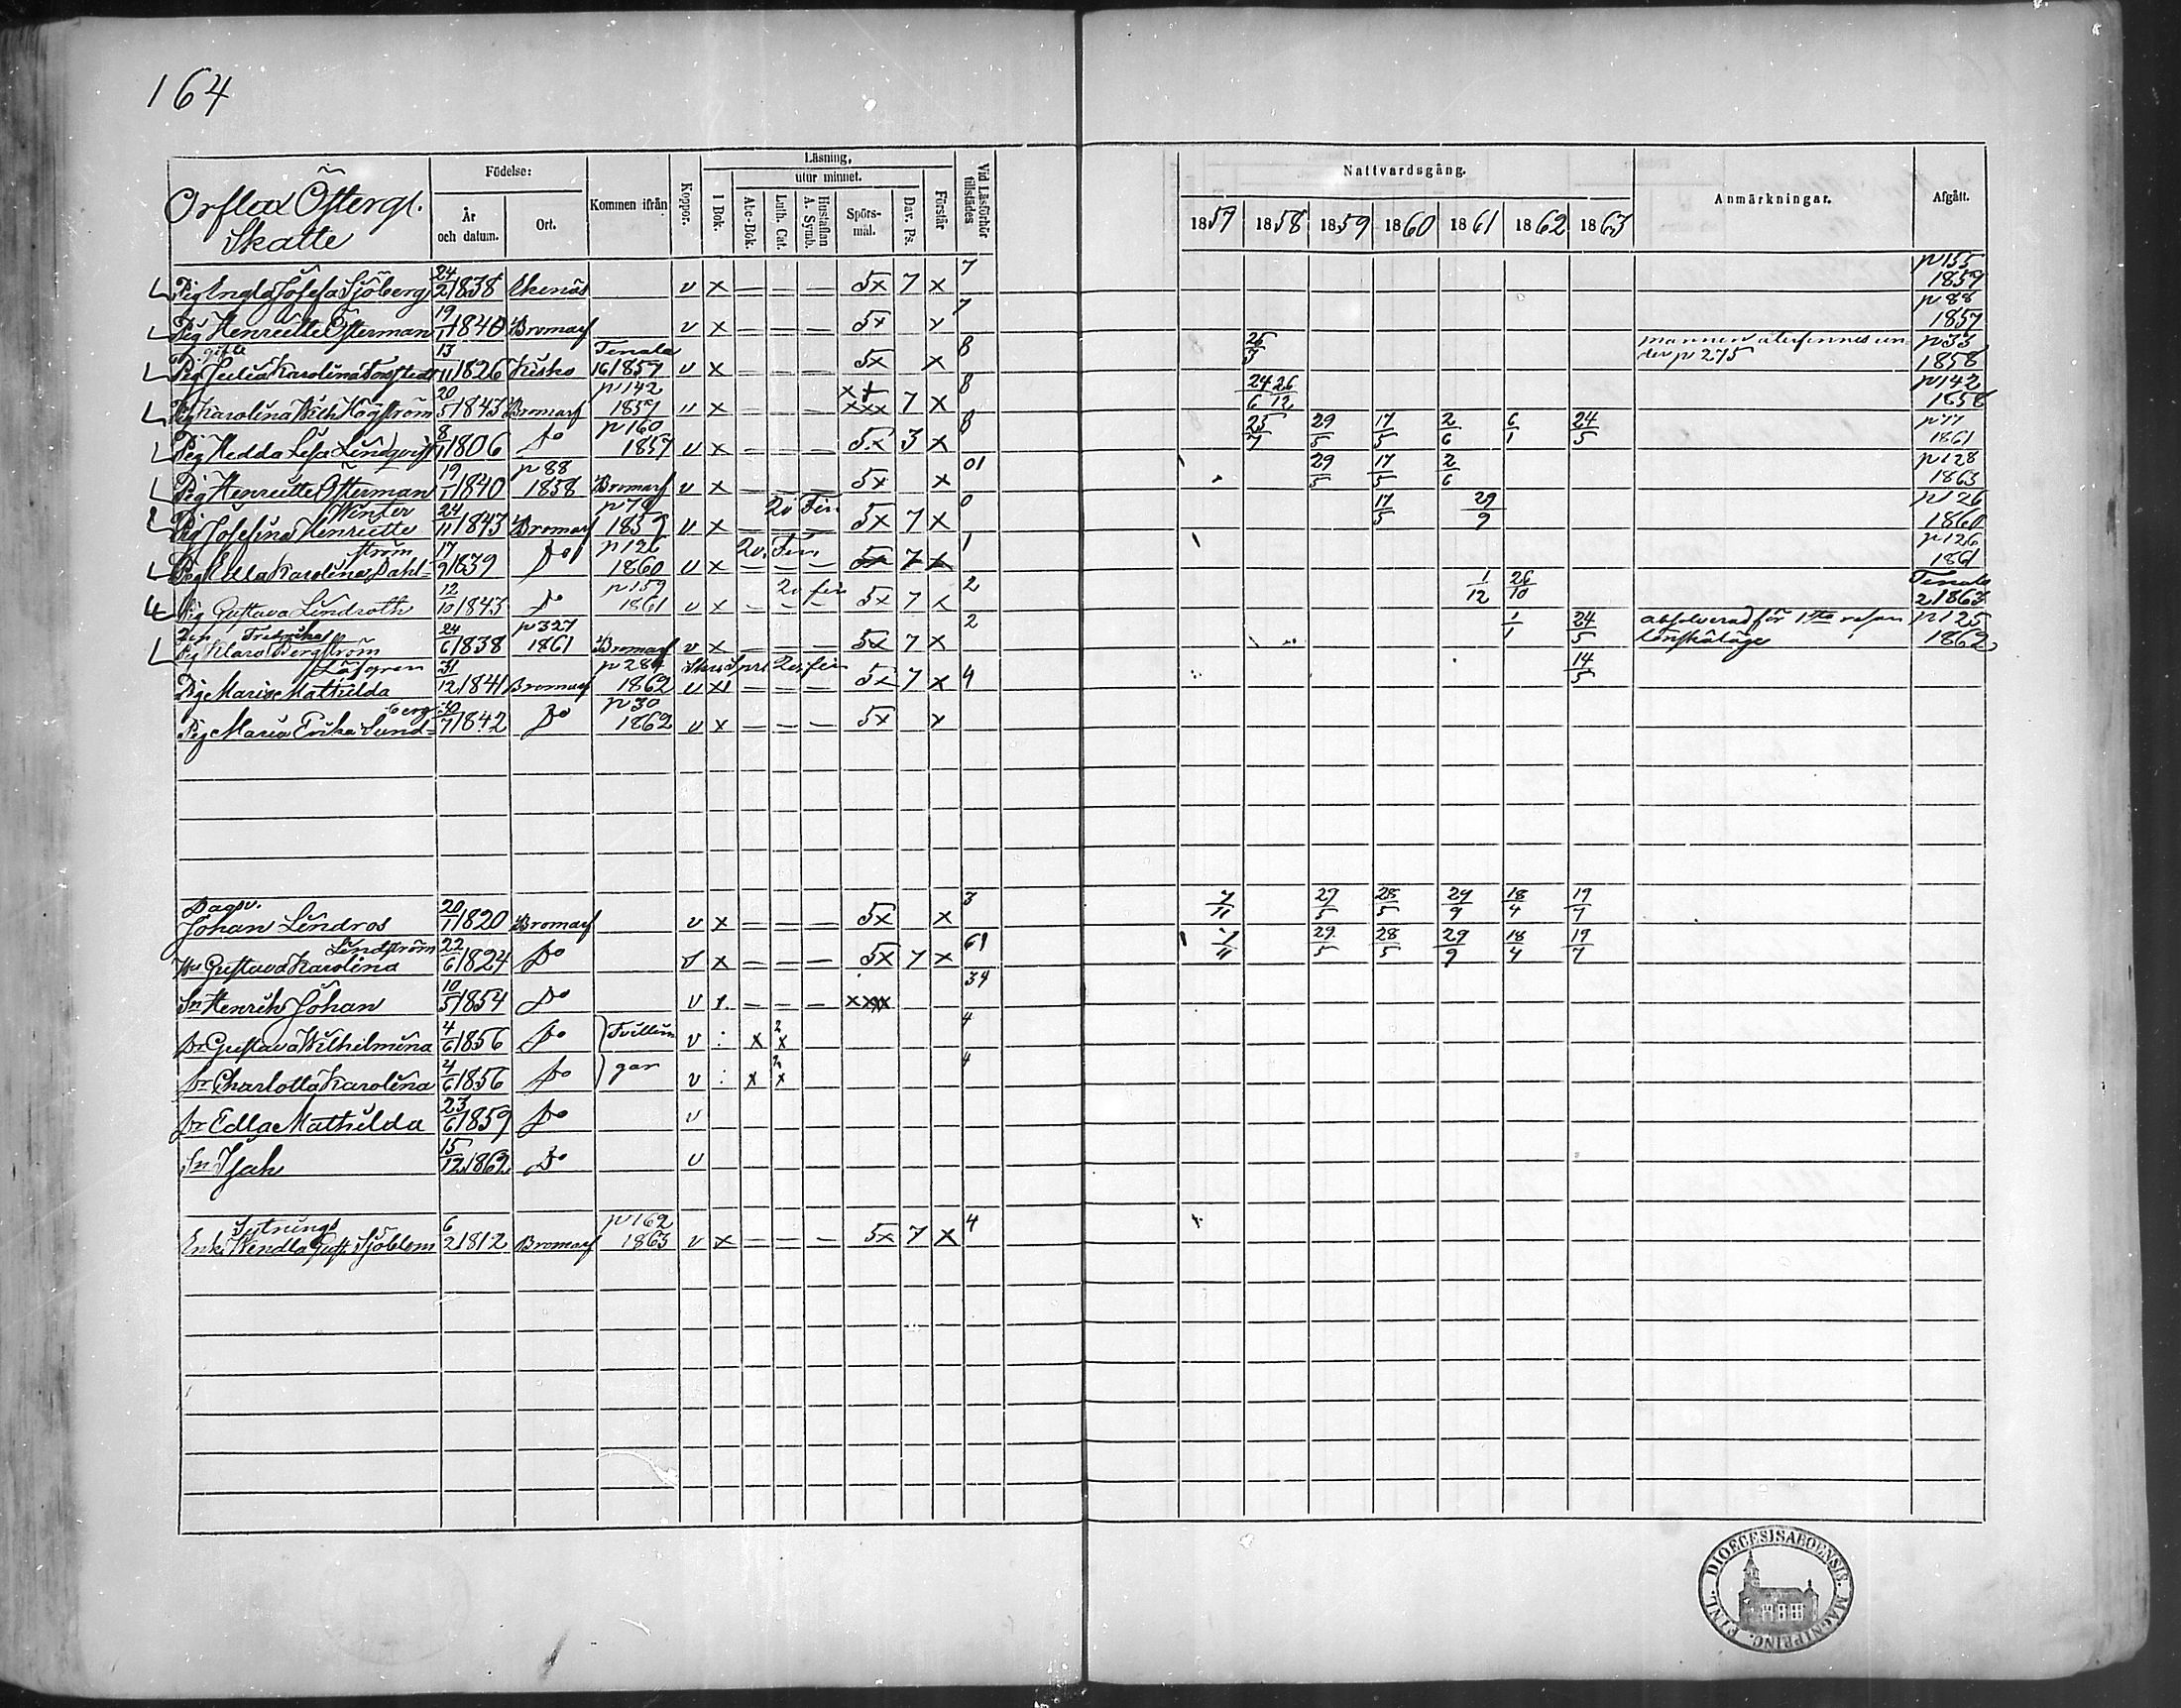 164
Orflax Östergl.
Skatte
Födelse:
År och datum.
Ort.
Kommen ifrån
Koppor.
Läsning,
I Bok.
utur minnet.
Abc-Bok.
Luth. Cat.
Hustaflan A. Symb.
Spörs-mål.
Dav. Ps.
Förstår
Vid Läsförhör tillstädes
Nattvardsgång.
1857 1858 1859 1860 1861 1862 1863
Anmärkningar.
Afgått.
Pig Engla Josefa Sjöberg 24/2 1838 Ekenäs v x — — — 5x 7 x 7 p155 1857
Pig Henriette Österman 19/1 1840 Bromarf v x — — — 5x x 7 p88 1857
gifte
Pig Julia Karolina 13/11 1826 Kisko Tenala 16/1857 v x — — — 5x x 8 25/7 mannen återfinnes under p 275 p33 1858
Pig Karolina Wilh Högström 20/5 1843 Bromarf p142 1857 v x — — — 7 x 8 24/6 26/12 p142 1858
Pig Hedda Lisa Lindqvist 8/1 1806 Do p160 1857 v x — — — 5x 3 x 8 25/7 29/5 17/5 2/6 6/1 24/5 p77 1861
Pig Henriette Österman 19/1 1840 p88 1858 Bromarf v x — — — 5x x 01 29/5 17/5 2/6 p128 1863
Winter
Pig Josefina Henriette 24/11 1843 Bromarf 1859 v x — 5x 7 x 0 17/5 29/9 p126 1860
ström
Pig Edla Karolina Dahl- 17/9 1839 Do p126 1860 v x — — — 5x 7 x 1 p126 1861
Pig Gustava Lindroth 12/10 1843 Do p159 1861 v x — — — 5x 7 x 2 1/12 26/10 Tenala 2 1863
Fredrika
Pig Klara Bergström 24/6 1838 p327 1861 Bromarf v x — — — 5x 7 x 2 1/1 24/5 absolverad för 1sta resan lönskaläge p125 1862
Löfgren
Pig Maria Mathilda 31/12 1841 Bromarf p284 1862 v x — — — 5x 7 x 4 14/5
berg
Pig Maria Erika Sund- 30/7 1842 Do p30 1862 v x — — — 5x x
Dagsv.
Johan Lindros 20/1 1820 Bromarf v x — — — 5x x 3 7/11 29/5 28/5 29/9 18/4 19/7
Lindström
Hu Gustava Karolina 22/6 1824 Do v x — — — 5x 7 x 61 7/11 29/5 28/5 29/9 18/4 19/7
Sn Henrik Johan 10/5 1854 Do v — — — 34
Dr Gustava Wilhelmina 4/6 1856 Do Tvillin v : x x 4
Dr Charlotta Karolina 4/6 1856 Do gar v : x x 4
Dr Edla Mathilda 23/6 1859 Do v
Sn Isak 15/12 1862 Do v
Sytnings
Enk. Wendla Gust. Sjöblom 6/2 1812 Bromarf p162 1863 v x — — — 5x 7 x 4
FINL. DIOECESIS ABOENSIS. MAGNI PRINC.